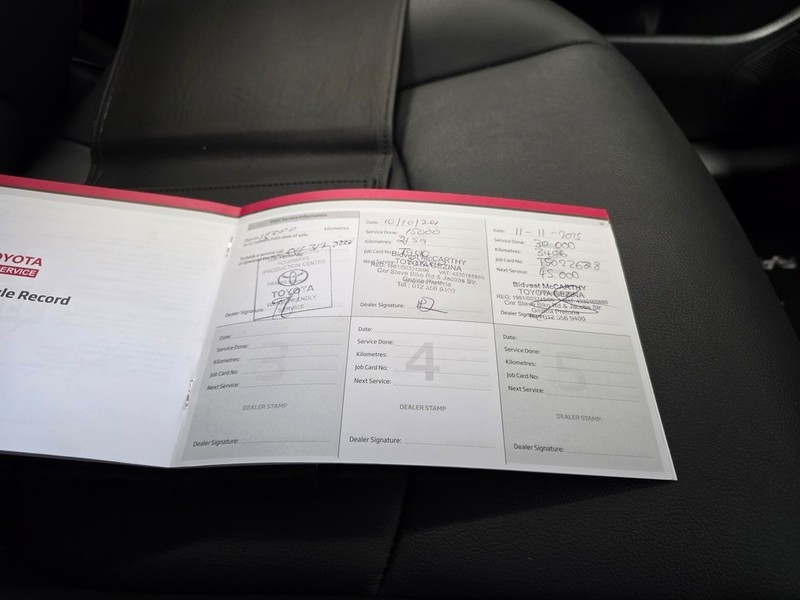 TOYOTA
SERVICE
le Record
Kilometres
TOYOTA
Dealer Signature:
Date: 10/10/
Service Done: 15000
Kilometres:
Job Card No:
Next
Bidvest McCARTHY
TOYOTA GEZINA
Cnr Steve Biko Rd & Jacobs Str.
Gezina Pretoria
Tel : 012 356 9400
Dealer Signature:
Date: 11-11-2025
Service Done: 30 000
Kilometres: 3406
Job Card No:
Next Service: 45 000
Bidvest McCARTHY
TOYOTA GEZINA
Cnr Steve Biko Rd & Jacobs Str.
Gezina Pretoria
Tel : 012 356 9400
Date:
Service Done:
Kilometres:
Job Card No:
Next Service:
3
DEALER STAMP
Dealer Signature:
Date:
Service Done:
Kilometres:
Job Card No:
Next Service:
4
DEALER STAMP
Dealer Signature:
Date:
Service Done:
Kilometres:
Job Card No:
Next Service:
5
DEALER STAMP
Dealer Signature: